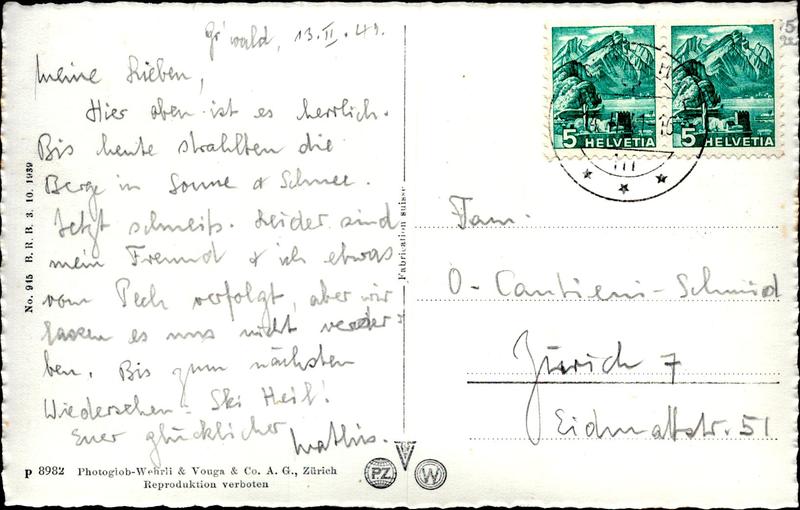 Gr'wald, 13.II.41.
Meine Lieben,
Hier oben ist es herrlich.
Bis heute strahlten die
Berge in Sonne & Schnee.
Jetzt schneits. Leider sind
mein Freund & ich etwas
vom Pech verfolgt, aber wir
lassen es uns nicht verder-
ben. Bis zum nächsten
Wiedersehen - Ski Heil!
Euer glücklicher Mathis.
No. 945 B. R. B. 3. 10. 1939
Fabrication suisse
p 8982 Photoglob-Wehrli & Vouga & Co. A. G., Zürich
Reproduktion verboten
PZ
W
5 HELVETIA
5 HELVETIA
Fam.
O-Cantieni-Schmid
Zürich 7
Eidmattstr. 51